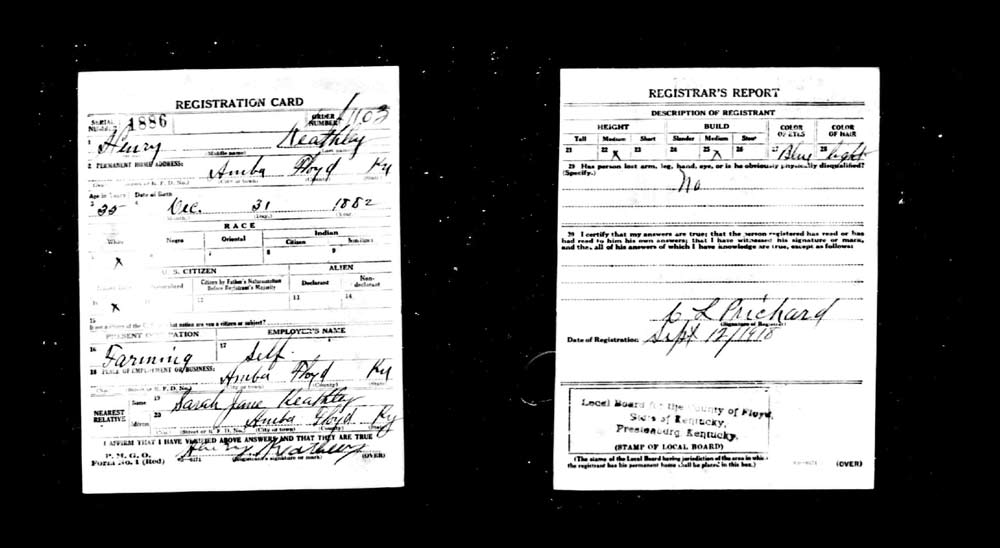 REGISTRATION CARD
SERIAL NUMBER 1886 ORDER NUMBER 1103
1 Henry Keathley
(Middle name) (Last name)
2 PERMANENT HOME ADDRESS:
Amba Floyd Ky
(Street or R. F. D. No.) (City or town) (State)
Age in Years Date of Birth
3 35 4 Dec. 31 1882
(Month.) (Day.) (Year.)
RACE
White Negro Oriental Indian
Citizen Noncitizen
7 8 9
X
U. S. CITIZEN ALIEN
Citizen by Father's Naturalization Before Registrant's Majority Declarant Non-declarant
X 12 13 14
15
If not a citizen of the U.S., of what nation are you a citizen or subject?
PRESENT OCCUPATION EMPLOYER'S NAME
16 Farming 17 Self.
18 PLACE OF EMPLOYMENT OR BUSINESS:
Amba Floyd Ky
(No.) (Street or R. F. D. No.) (City or town) (County) (State)
NEAREST RELATIVE Name 19 Sarah Jane Keathley
Address 20 Amba Floyd Ky
(No.) (Street or R. F. D. No.) (City or town) (County) (State)
I AFFIRM THAT I HAVE VERIFIED ABOVE ANSWERS AND THAT THEY ARE TRUE
P. M. G. O.
Form No. 1 (Red) Henry Keathley
(Registrant's signature or mark) (OVER)
REGISTRAR'S REPORT
DESCRIPTION OF REGISTRANT
HEIGHT BUILD COLOR OF EYES COLOR OF HAIR
Tall Medium Short Slender Medium Stout
21 22 X 23 24 25 X 26 27 Blue 28 light
29 Has person lost arm, leg, hand, eye, or is he obviously physically disqualified?
(Specify.)
No
30 I certify that my answers are true; that the person registered has read or has
had read to him his own answers; that I have witnessed his signature or mark,
and that all of his answers of which I have knowledge are true, except as follows:
C L Prichard
(Signature of Registrar)
Date of Registration Sept 12/1918
Local Board for the County of Floyd,
State of Kentucky,
Prestonsburg, Kentucky.
(STAMP OF LOCAL BOARD)
(The stamp of the Local Board having jurisdiction of the area in which
the registrant has his permanent home shall be placed in this box.)
(OVER)